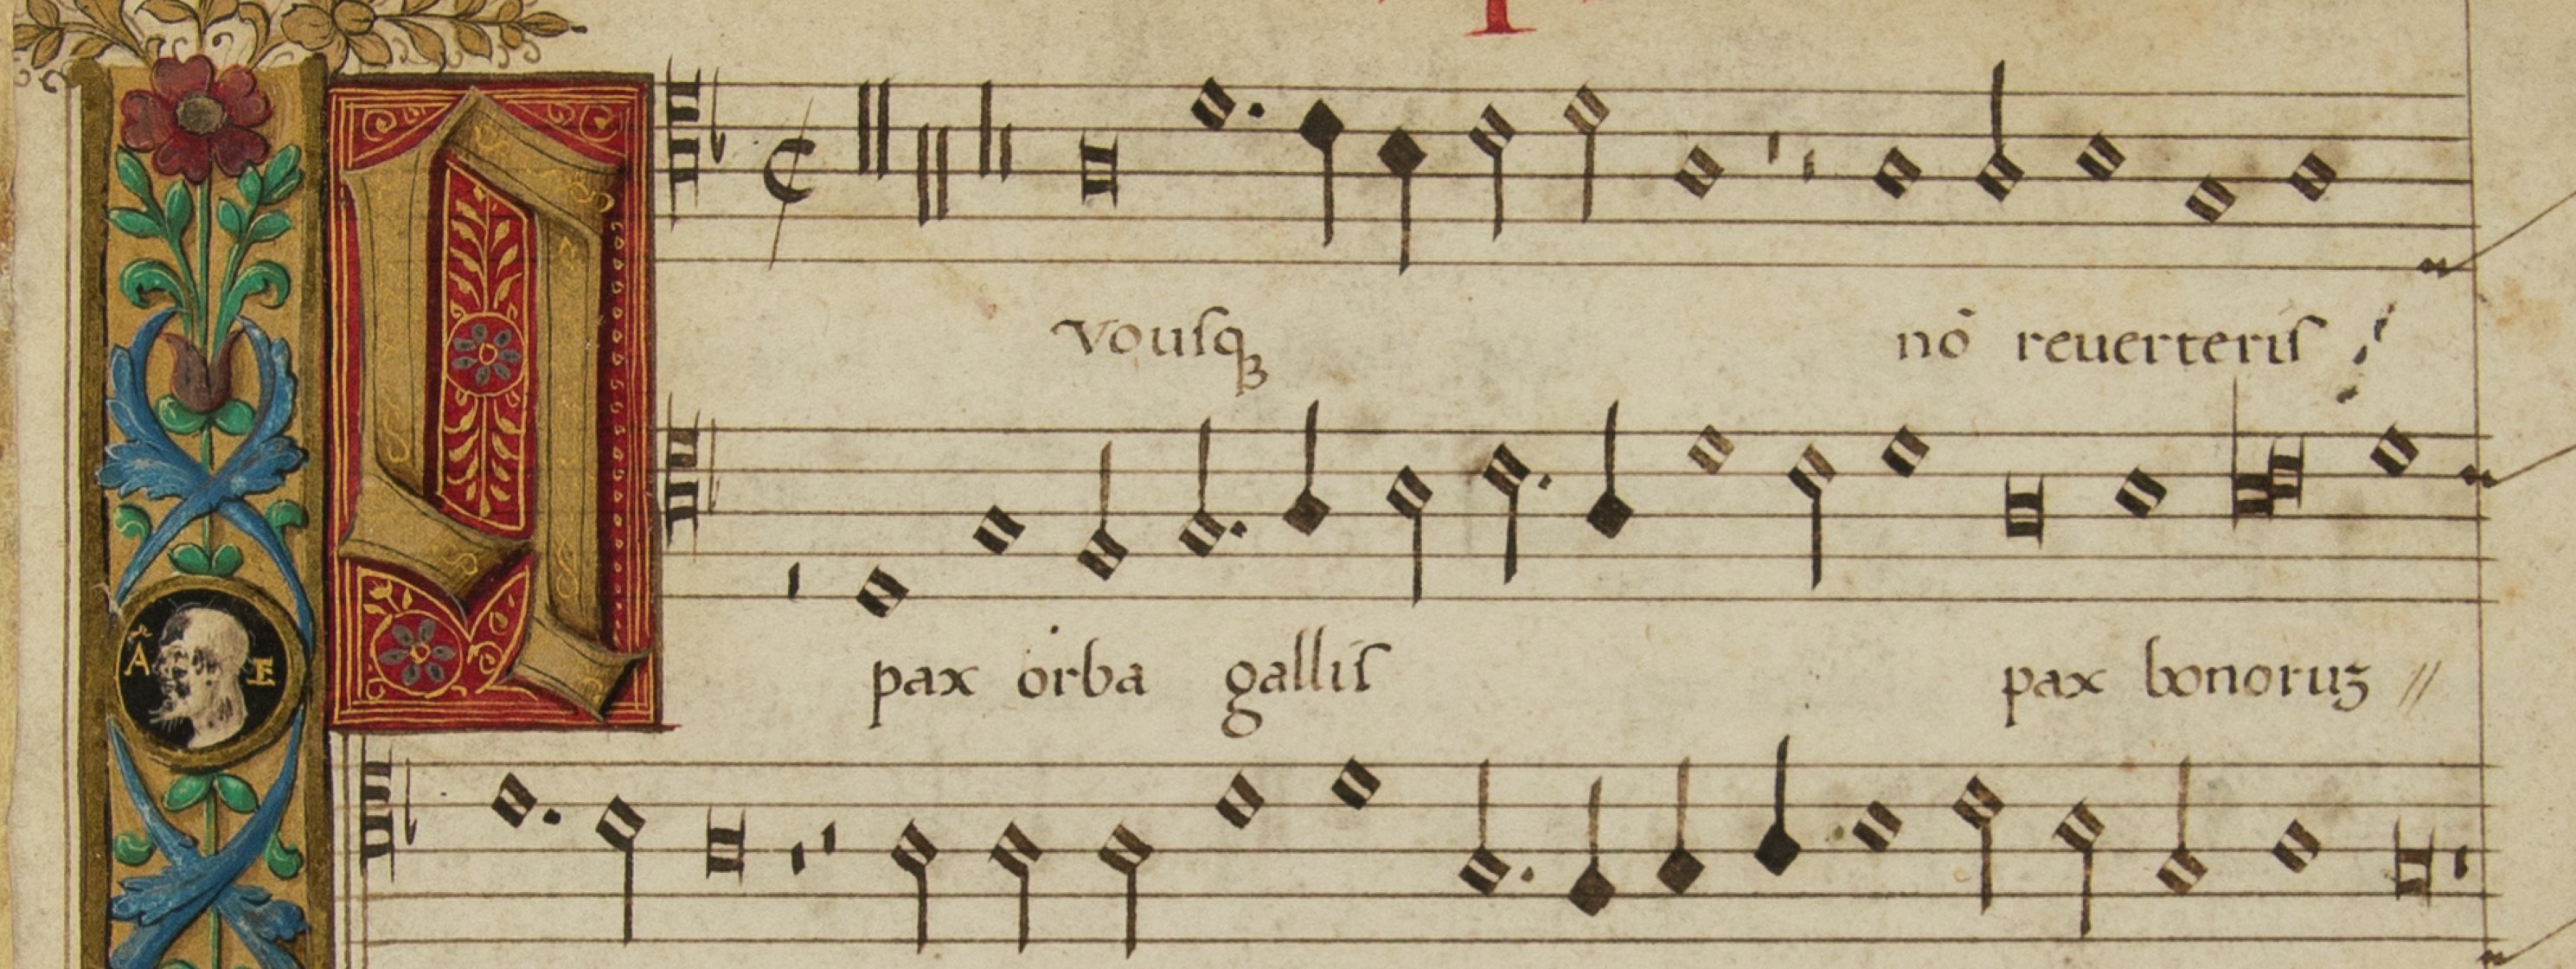 Quousqꝫ nō reuerteris
pax orba gallis pax bonoruꝫ //
A E